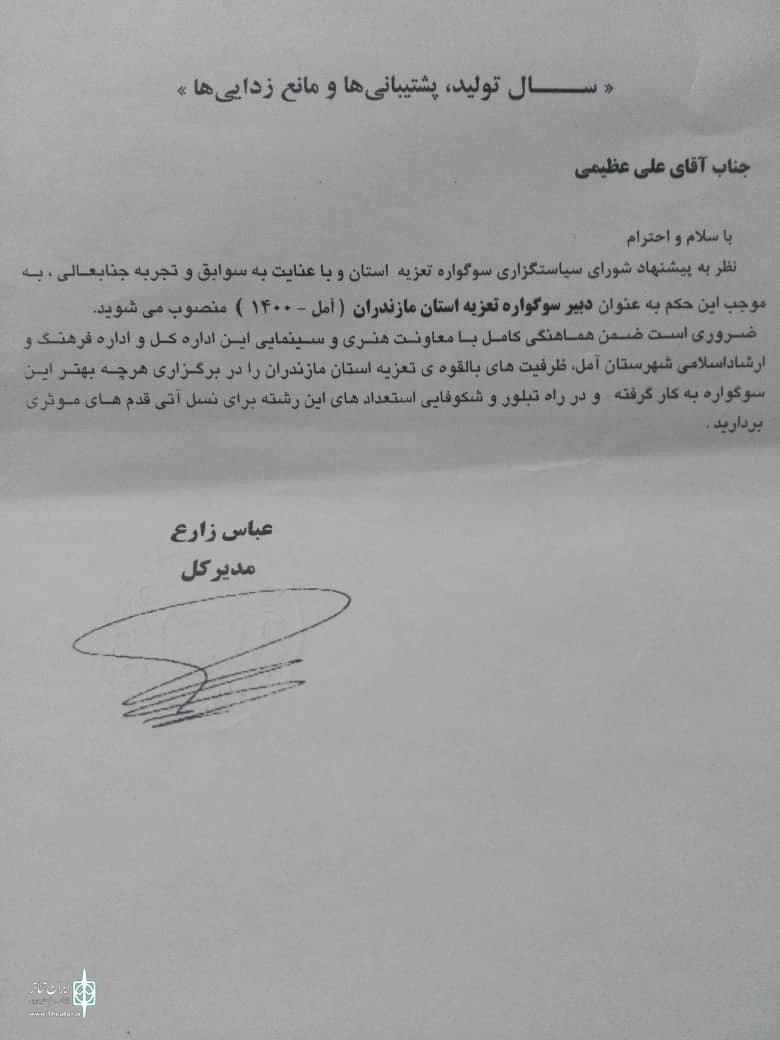 « ســـــال تولید، پشتیبانی‌ها و مانع زدایی‌ها »
جناب آقای علی عظیمی
با سلام و احترام
نظر به پیشنهاد شورای سیاستگزاری سوگواره تعزیه استان و با عنایت به سوابق و تجربه جنابعالی ، به
موجب این حکم به عنوان دبیر سوگواره تعزیه استان مازندران ( آمل - ۱۴۰۰ ) منصوب می شوید.
ضروری است ضمن هماهنگی کامل با معاونت هنری و سینمایی این اداره کل و اداره فرهنگ و
ارشاداسلامی شهرستان آمل، ظرفیت های بالقوه ی تعزیه استان مازندران را در برگزاری هرچه بهتر این
سوگواره به کار گرفته و در راه تبلور و شکوفایی استعداد های این رشته برای نسل آتی قدم های موثری
بردارید .
عباس زارع
مدیرکل
ایران تئاتر
www.Theater.ir